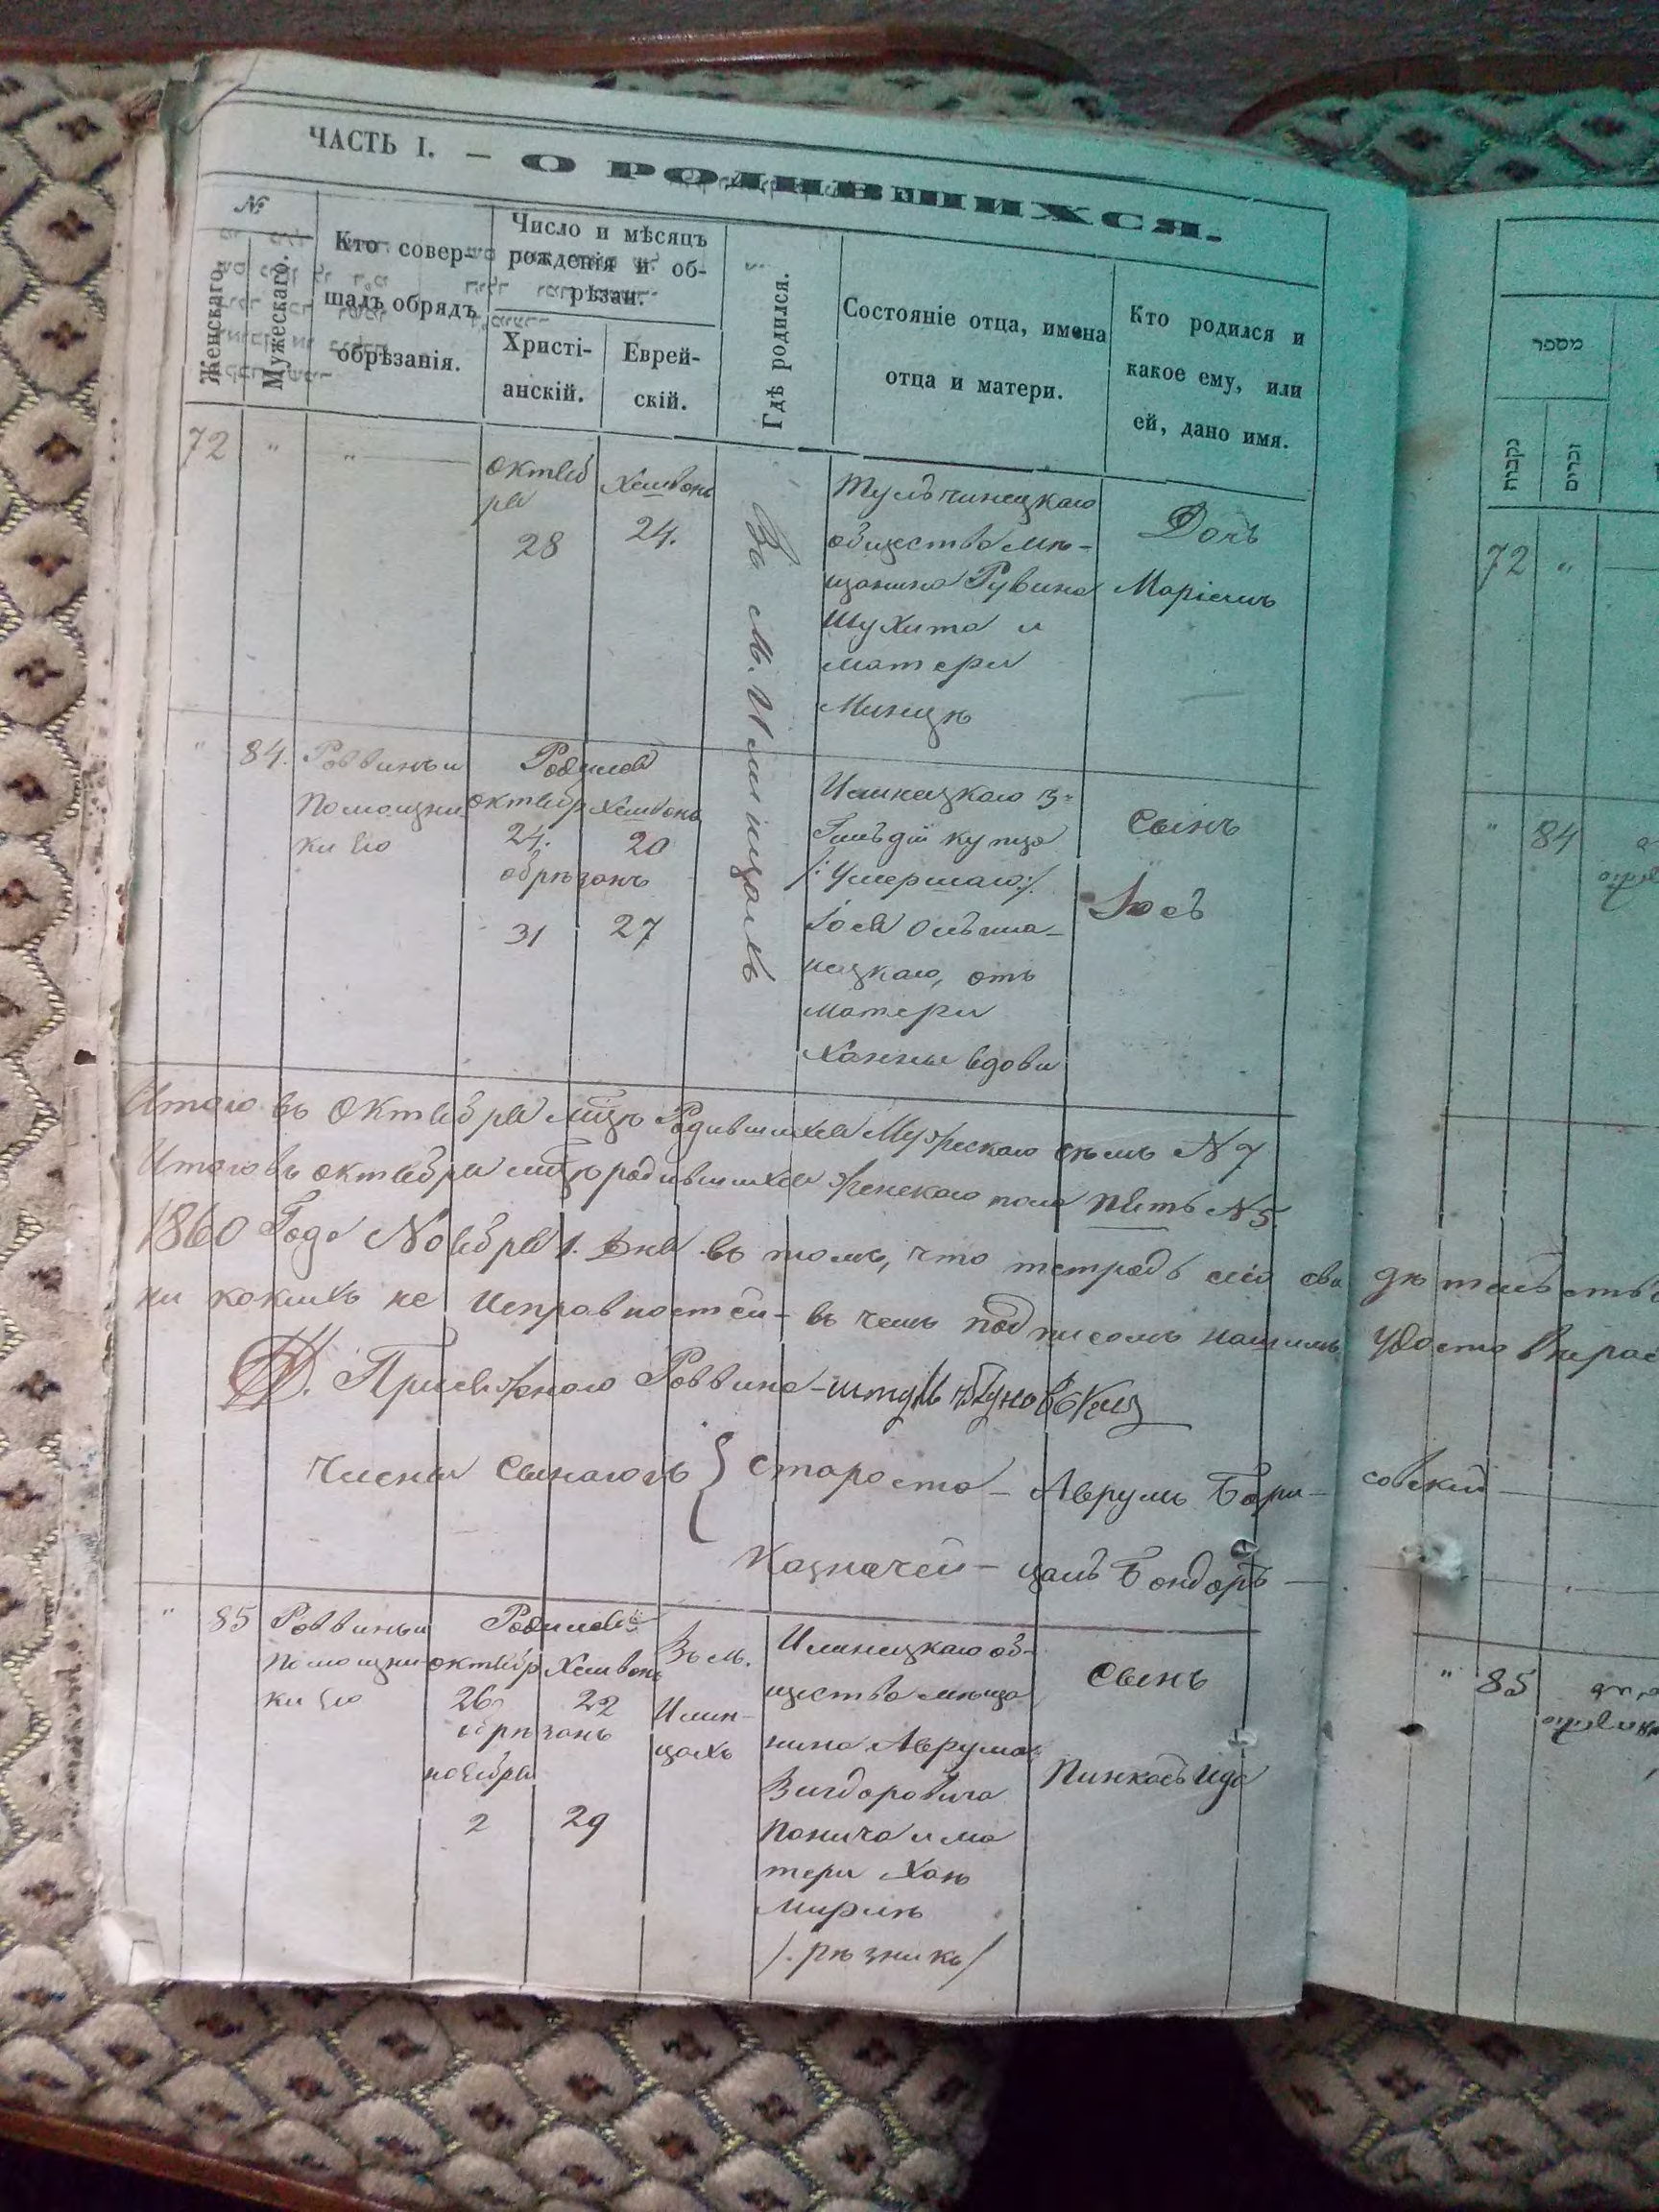 ЧАСТЬ I. — О РОДИВШИХСЯ.
№
Женскаго.
Мужескаго.
Кто совер-
шалъ обрядъ
обрѣзанія.
Число и мѣсяцъ
рожденія и об-
рѣзан.
Христі-
анскій.
Еврей-
скій.
Гдѣ родился.
Состояніе отца, имена
отца и матери.
Кто родился и
какое ему, или
ей, дано имя.
72 " "
октяб
ря
28
Хешвонъ
24.
Въ м. Илинцахъ
Тульчинецкаго
общества мѣ-
щанина Рувина
Шухита и
матери
Минцѣ
Дочь
Маріемъ
" 84.
Раввинъ и
помощни
ки его
Родился
октябр Хешвонъ
24. 20
обрѣзанъ
31 27
Илинецкаго 3ᵉ
Гильдіи купца
/: Умершаго :/
Іося Ольша-
нецкаго, отъ
матери
Ханны вдови
Сынъ
Іось
Итого въ Октября мцѣ Родившихся Мужескаго семь N 7
Итого въ октября мцѣ родившихся женскаго пола пять N 5
1860 Года Ноября 1. дня въ томъ, что тетрадь сію сви дѣтельств
ни какихъ не Исправностей - въ чемъ подписомъ нашимъ Удосто
Присяжнаго Раввина -
члены Синагогъ { староста - Аврумъ Бори- совскій
Казначей - цаль Бондарь
" 85
Раввинъ и
помощни
ки его
Родился
октябр Хешвонъ
26 22
обрѣзанъ
ноября
2 29
Въ м.
Илин-
цахъ
Илинецкаго об-
щества мѣща
нина Аврума
Вигдоровича
Панича и ма
тери Хаи
Мирлѣ
/. рѣзникъ /
Сынъ
Пинкасъ Ида
מספר
נקבות
זכרים
72 "
" 84
" 85